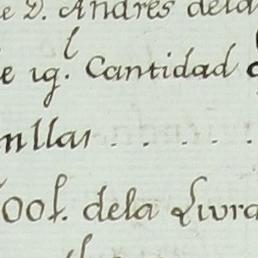 e D. Andres dela
e ig.l Cantidad
nllas . . . . .
00f. dela Livra